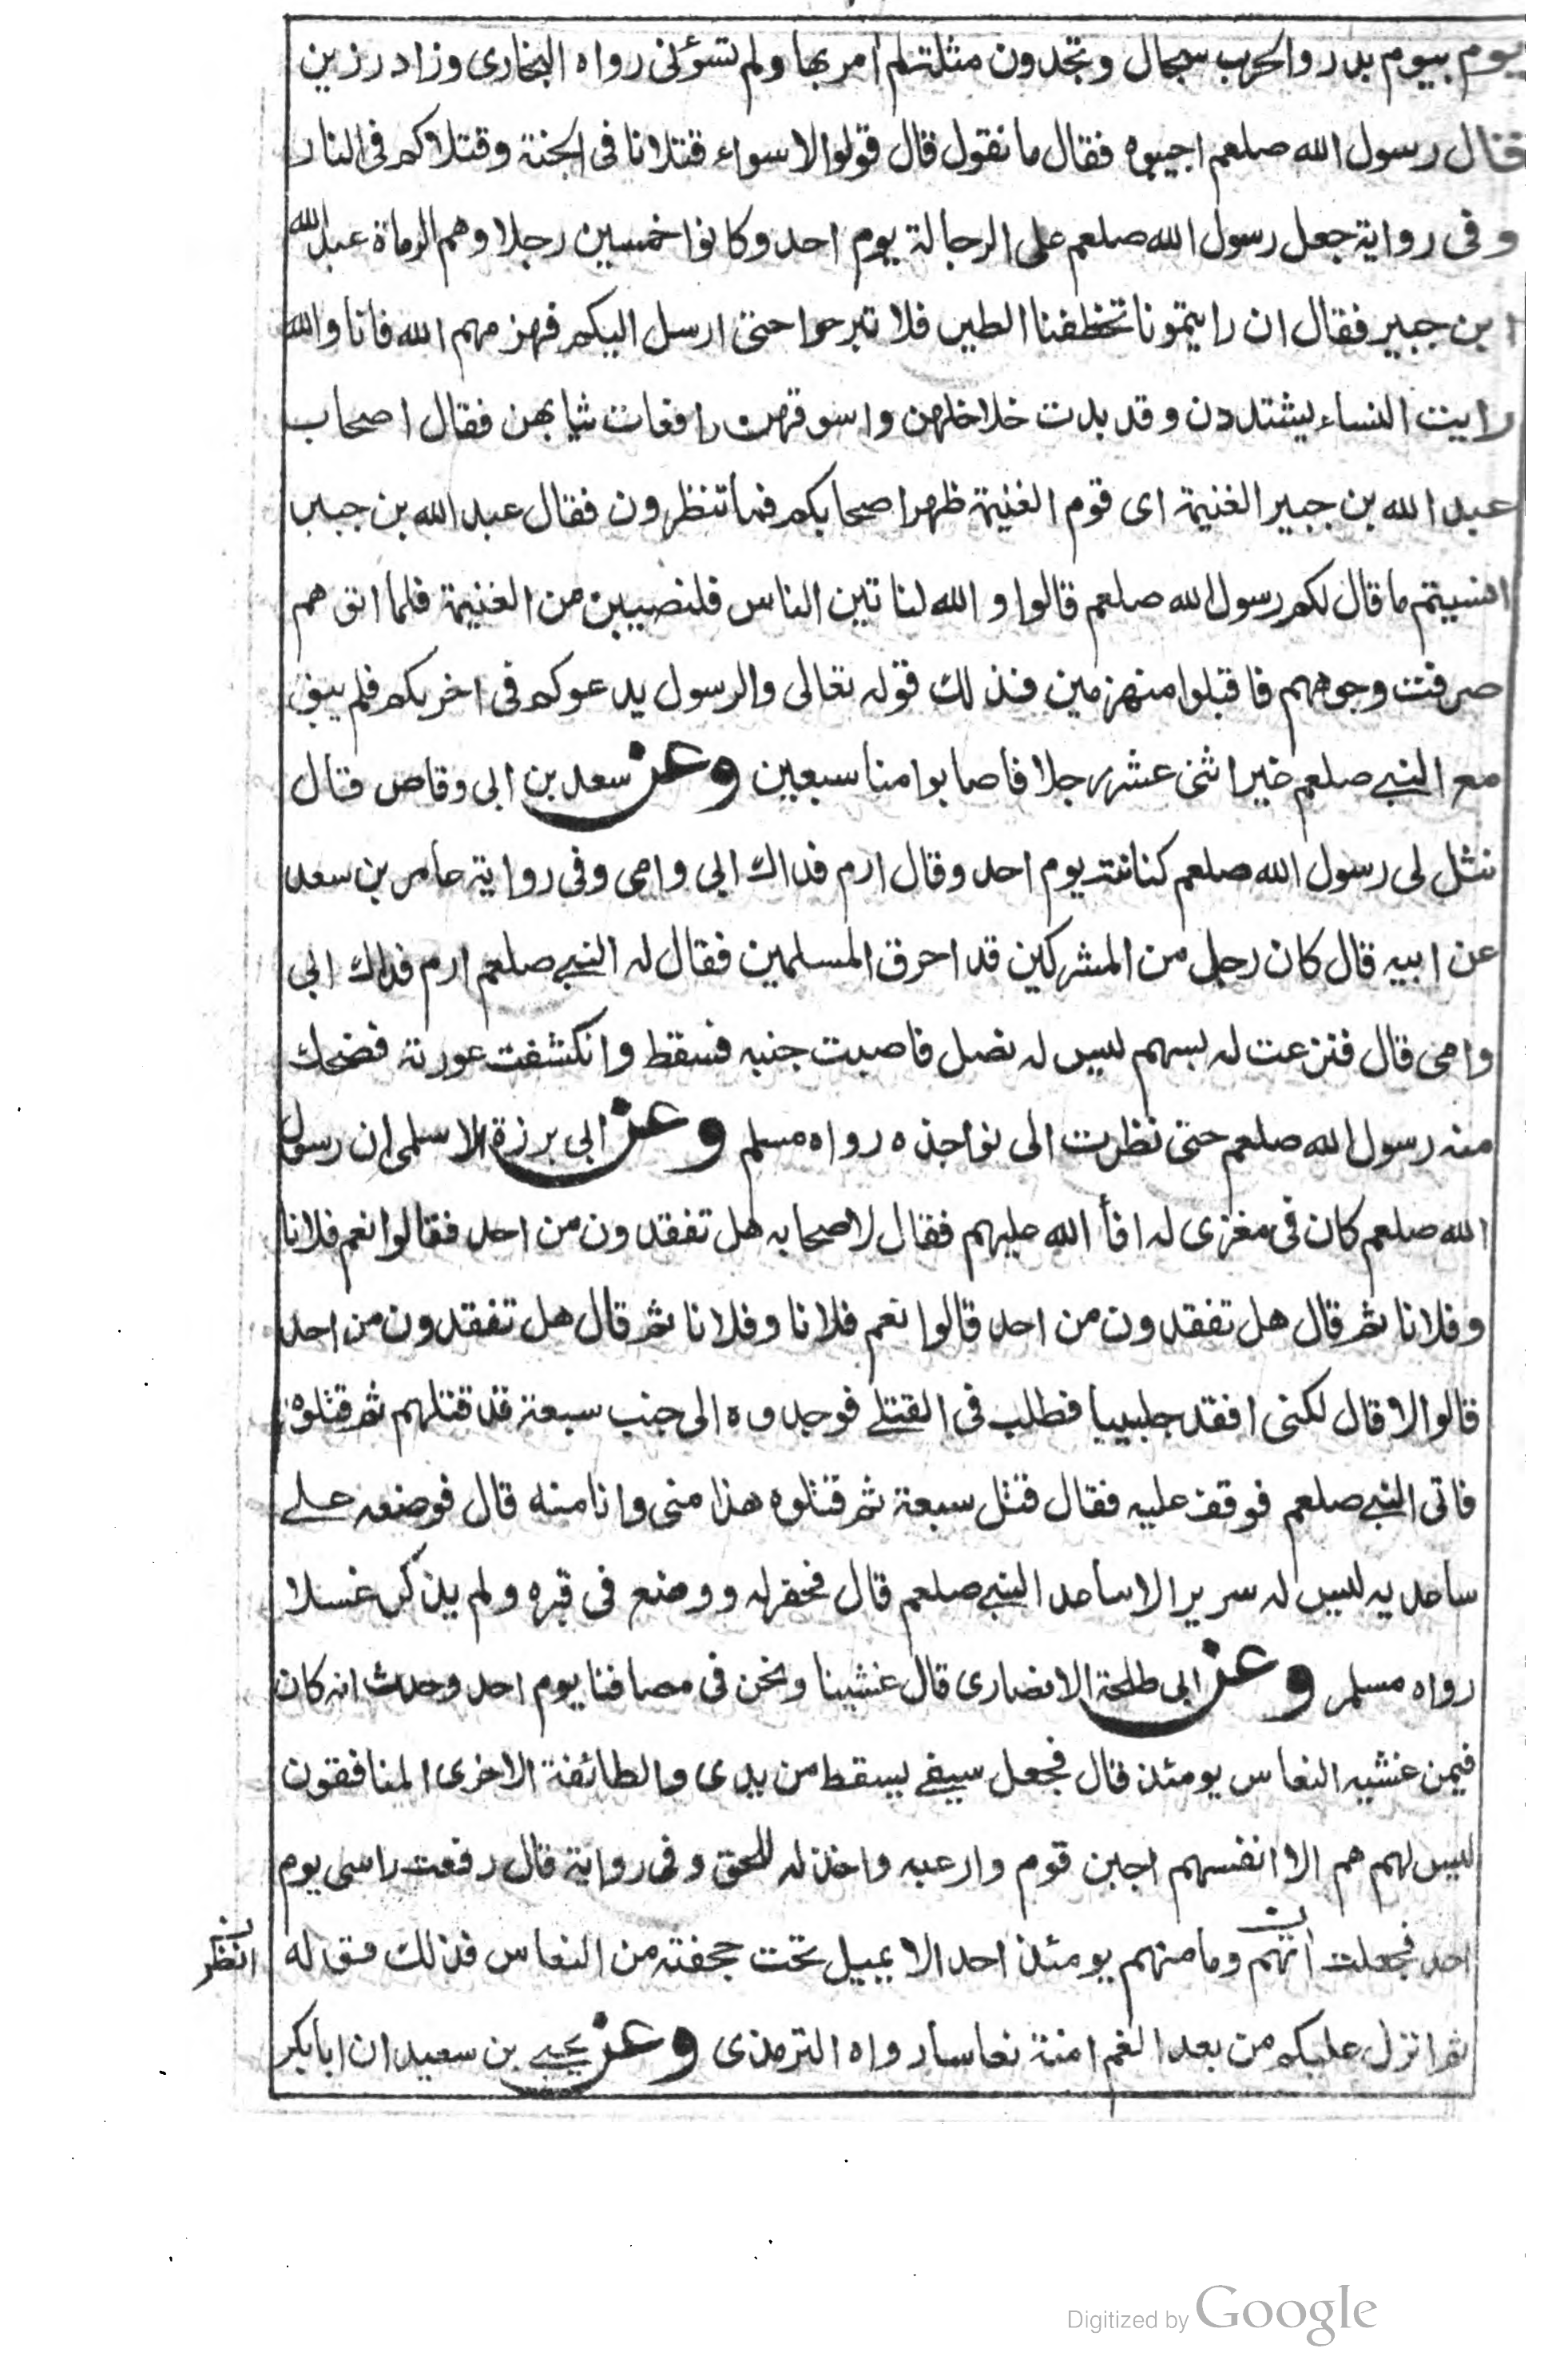 يوم بيوم بدر والحرب سجال وتجدون مثلة لم امر بها ولم تسؤنى رواه البخارى وزاد رزين
فقال رسول الله صلعم اجيبوه فقال ما نقول قال قولوا لا سواء قتلانا فى الجنة وقتلاكم فى النار
وفى رواية جعل رسول الله صلعم على الرجالة يوم احد وكانوا خمسين رجلا وهم الرماة عبد الله
ابن جبير فقال ان رايتمونا تخطفنا الطير فلا تبرحوا حتى ارسل اليكم فهزمهم الله فانا والله
رايت النساء يشتددن وقد بدت خلاخلهن واسوقهن رافعات ثيابهن فقال اصحاب
عبد الله بن جبير الغنيمة اى قوم الغنيمة ظهر اصحابكم فما تنظرون فقال عبد الله بن جبير
انسيتم ما قال لكم رسول الله صلعم قالوا والله لناتين الناس فلنصيبن من الغنيمة فلما اتوهم
صرفت وجوههم فاقبلوا منهزمين فذلك قوله تعالى والرسول يدعوكم فى اخريكم فلم يبق
مع النبي صلعم غير اثنى عشر رجلا فاصابوا منا سبعين وعن سعد بن ابى وقاص قال
نثل لى رسول الله صلعم كنانته يوم احد وقال ارم فداك ابى وامى وفى رواية عامر بن سعد
عن ابيه قال كان رجل من المشركين قد احرق المسلمين فقال له النبي صلعم ارم فداك ابى
وامى قال فنزعت له بسهم ليس له نصل فاصبت جنبه فسقط وانكشفت عورته فضحك
منه رسول الله صلعم حتى نظرت الى نواجذه رواه مسلم وعن ابى برزة الاسلمى ان رسول
الله صلعم كان فى مغزى له افأ الله عليهم فقال لاصحابه هل تفقدون من احد فقالوا نعم فلانا
وفلانا ثم قال هل تفقدون من احد قالوا نعم فلانا وفلانا ثم قال هل تفقدون من احد
قالوا لا قال لكنى افقد جلبيبا فطلب فى القتلے فوجدوه الى جنب سبعة قد قتلهم ثم قتلوه
فاتى النبي صلعم فوقف عليه فقال قتل سبعة ثم قتلوه هذا منى وانا منه قال فوضعه علے
ساعديه ليس له سرير الا ساعد النبي صلعم قال فحفر له ووضع فى قبره ولم يذكر غسلا
رواه مسلم وعن ابى طلحة الانصارى قال غشينا ونحن فى مصافنا يوم احد وحدث انه كان
فيمن غشيه النعاس يومئذ قال فجعل سيفے يسقط من يدى والطائفة الاخرى المنافقون
ليس لهم هم الا انفسهم اجبن قوم وارعبه واخذله للحق وفى رواية قال رفعت راسى يوم
احد فجعلت وما منهم يومئذ احد الا يميل تحت حجفته من النعاس فذلك قوله
انظر
ثم انزل عليكم من بعد الغم امنة نعاسا رواه الترمذى وعن يحيے بن سعيد ان ابابكر
Digitized by Google